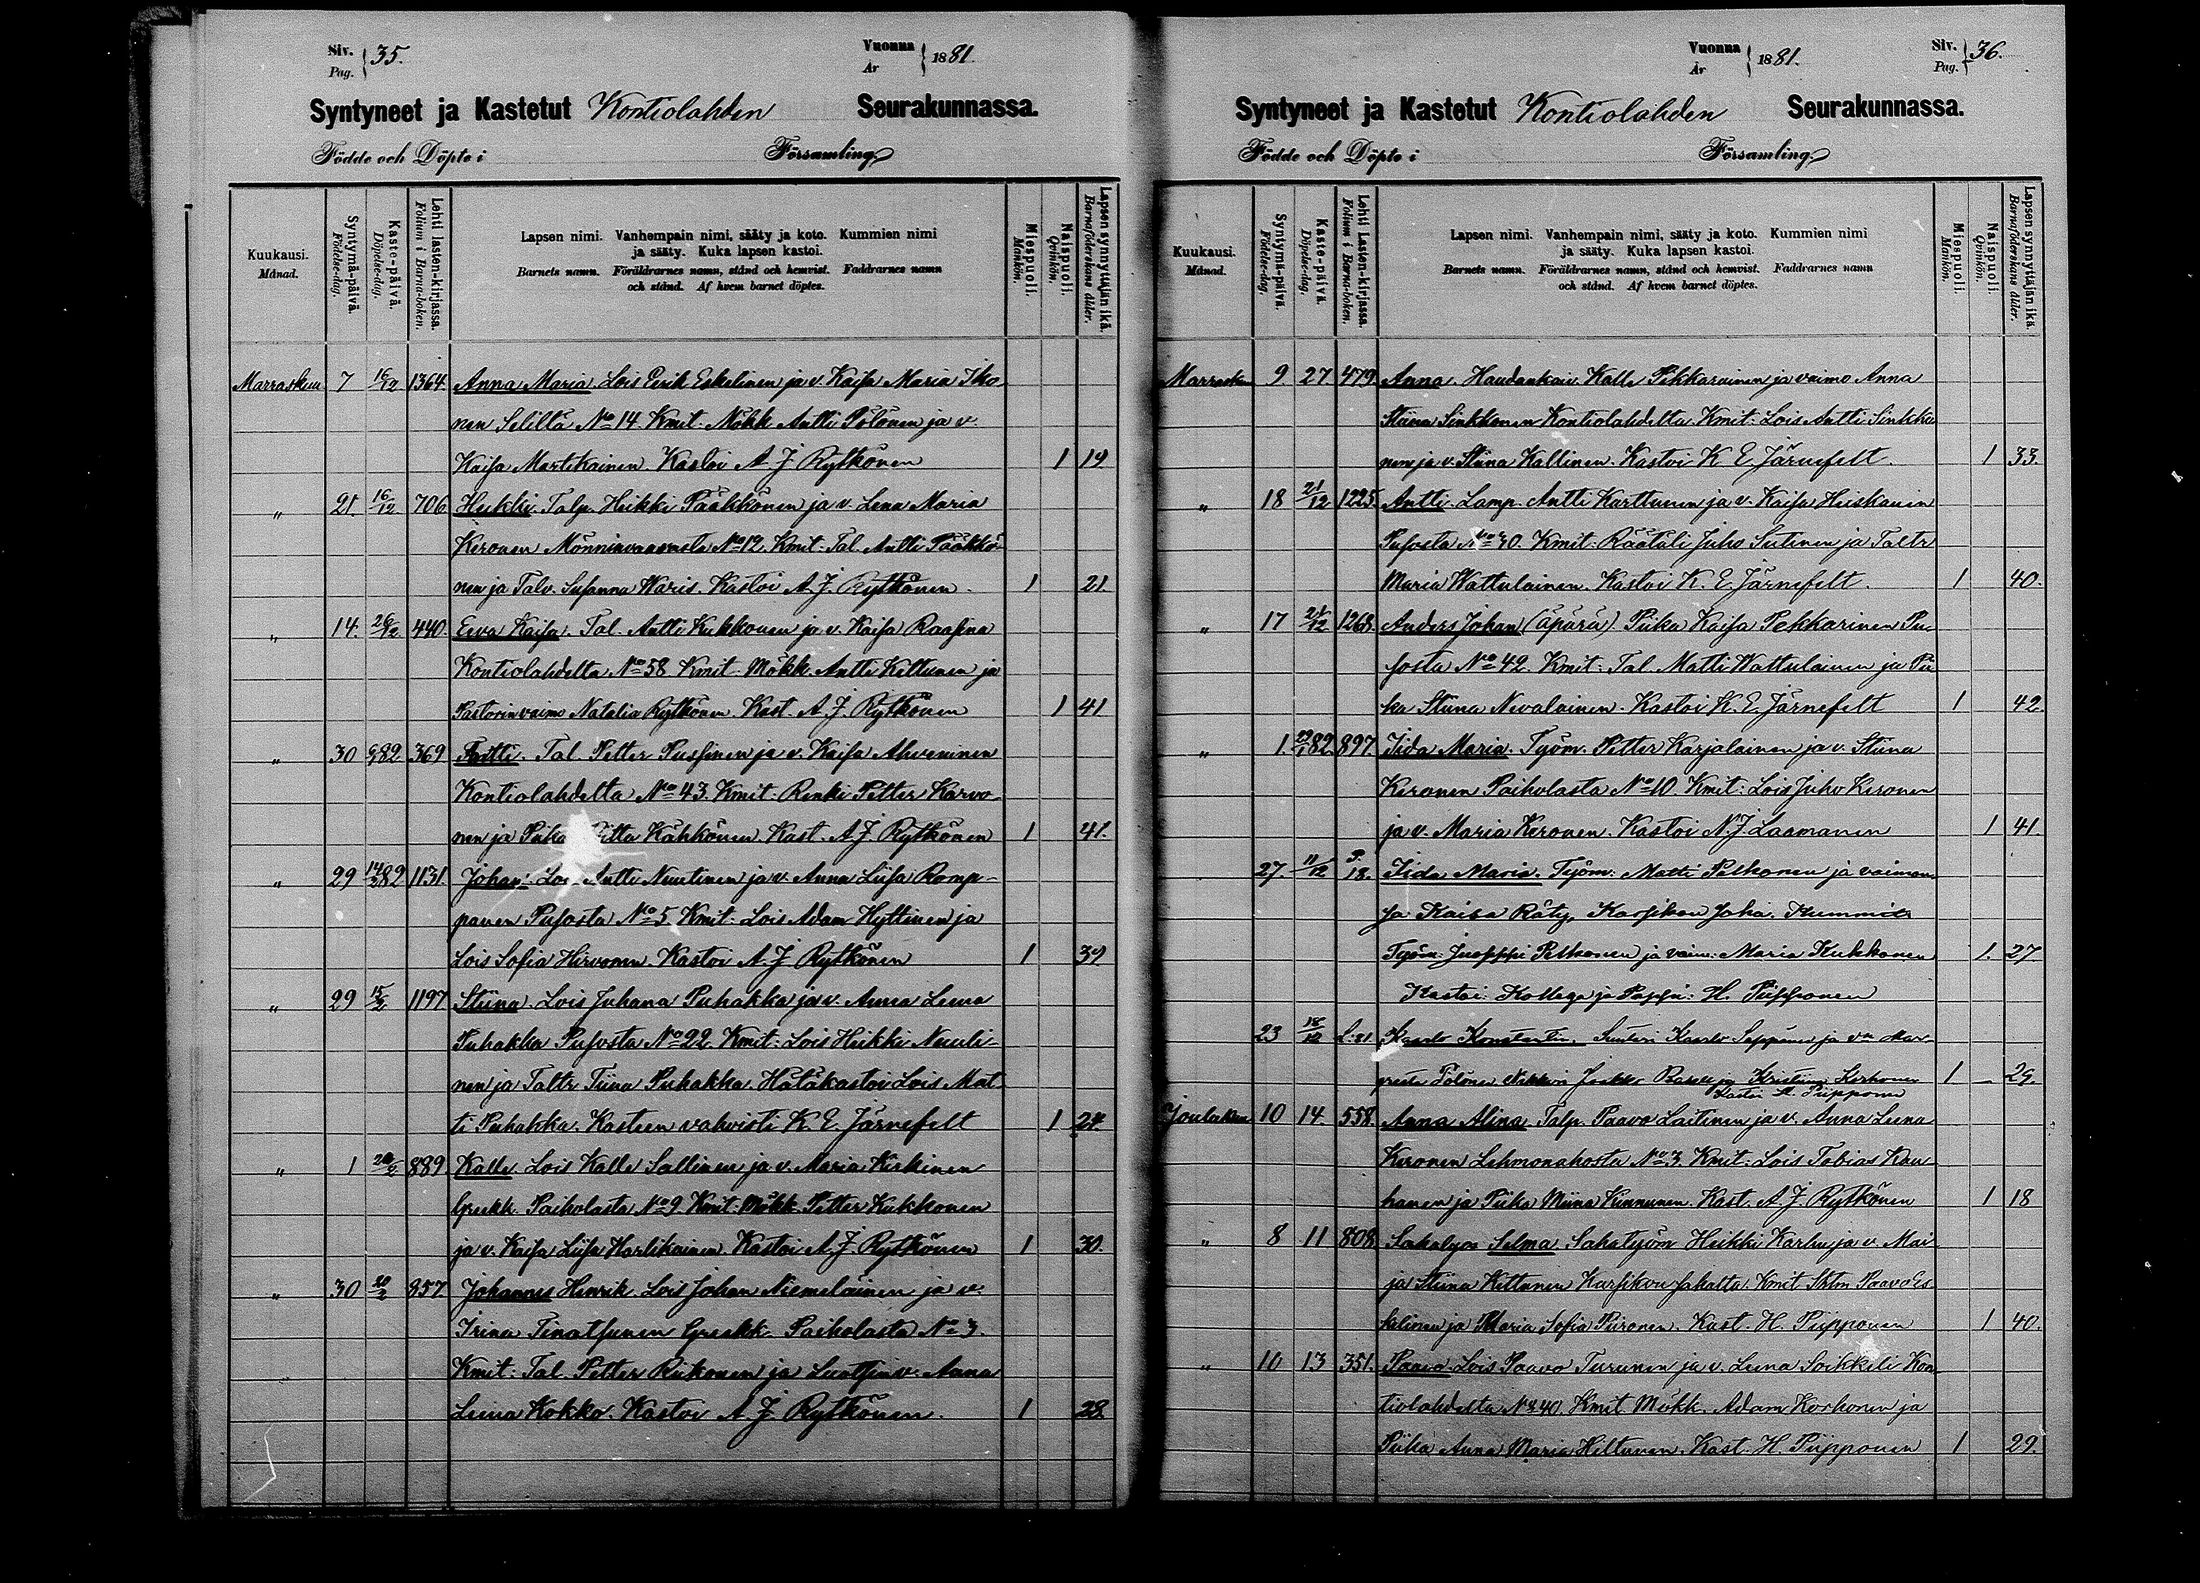 Siv. Pag. 35.
Vuonna År 1881.
Syntyneet ja Kastetut Kontiolahden Seurakunnassa.
Födde och Döpte i Församling
Kuukausi. Månad.
Syntymä-päivä. Födelse-dag.
Kaste-päivä. Döpelse-dag.
Lehti lasten-kirjassa. Folium i Barna-boken.
Lapsen nimi. Vanhempain nimi, sääty ja koto. Kummien nimi
ja sääty. Kuka lapsen kastoi.
Barnets namn. Föräldrarnes namn, stånd och hemvist. Faddrarnes namn
och stånd. Af hvem barnet döptes.
Miespuoli. Mankön.
Naispuoli. Qvinkön.
Lapsen synnyttäjän ikä. Barnaföderskans ålder.
Marraskuu 7 16/12 1364. Anna Maria. Lois Eerik Eskelinen ja v. Kaisa Maria Iko
nen Seliltä No 14. Kmit. Mökk Antti Pölönen ja v.
Kaisa Martikainen. Kastoi A J Rytkönen 1 19
" 21. 16/12 706 Heikki. Talp. Heikki Pääkkönen ja v. Lena Maria
Keronen Mönninvaarasta No 12. Kmit. Tal. Antti Pääkkö-
nen ja Talv. Susanna Waris. Kastoi A. J. Rytkönen. 1 21.
" 14. 26/12 440. Eeva Kaisa. Tal. Antti Kukkonen ja v. Kaisa Raasina
Kontiolahdelta No 58 Kmit. Mökk. Antti Kettunen ja
Pastorin vaimo Natalia Rytkönen Kast. A. J. Rytkönen 1 41
" 30 82. 369 Antti. Tal. Petter Pussinen ja v. Kaisa Ahveninen
Kontiolahdelta No 43. Kmit. Renki Petter Karvo-
nen ja Kähkönen. Kast. A. J. Rytkönen 1 41.
" 29 82 1131. Johan. Lois Antti Nuutinen ja v. Anna Liisa Romp-
panen Pusosta No 5 Kmit: Lois Adam Hyttinen ja
Lois Sofia Hirvonen. Kastoi A. J. Rytkönen 1 39
" 29 15/2 1197. Stiina. Lois Juhana Puhakka ja v. Anna Leena
Puhakka Pusosta No 22. Kmit: Lois Heikki Nuuti-
nen ja Taltr Tiina Puhakka. Hätäkastoi Lois Mat-
ti Puhakka. Kasteen vahvisti K. E. Järnefelt 1 24.
" 1 20/2 889 Kalle. Lois Kalle Sallinen ja v. Maria Kiskinen
Greekk. Paiholasta No 9 Kmit: Mökk. Petter Kukkonen
ja v. Kaisa Liisa Hartikainen. Kastoi A. J. Rytkönen 1 30.
" 30 20/2 857 Johannes Henrik. Lois Johan Niemeläinen ja v.
Irina Greekk. Paiholasta No 3.
Kmit: Tal. Petter Riikonen ja Anna
Leena Kokko. Kastoi A. J. Rytkönen. 1 28.
Siv. Pag. 36.
Vuonna År 1881.
Syntyneet ja Kastetut Kontiolahden Seurakunnassa.
Födde och Döpte i Församling
Kuukausi. Månad.
Syntymä-päivä. Födelse-dag.
Kaste-päivä. Döpelse-dag.
Lehti Lasten-kirjassa. Folium i Barna-boken.
Lapsen nimi. Vanhempain nimi, sääty ja koto. Kummien nimi
ja sääty. Kuka lapsen kastoi.
Barnets namn. Föräldrarnes namn, stånd och hemvist. Faddrarnes namn
och stånd. Af hvem barnet döptes.
Miespuoli. Mankön.
Naispuoli. Qvinkön.
Lapsen synnyttäjän ikä. Barnaföderskans ålder.
Marrask. 9 27 479 Anna. Haudankaiv. Kalle Pikkarainen ja vaimo Anna
Stiina Sinkkonen Kontiolahdelta. Kmit: Lois Antti Sinkko
nen ja v. Stiina Kallinen. Kastoi K E Järnefelt. 1 33.
" 18 21/12 1225. Antti. Lamp. Antti Karttunen ja v. Kaisa Heiskanen
Pusosta No 30. Kmit: Räätäli Juho Sutinen ja Taltr
Maria Wattulainen. Kastoi K. E. Järnefelt. 1 40.
" 17 21/12 1268. Anders Johan (äpärä). Piika Kaisa Pekkarinen Pu-
sosta No 42. Kmit: Tal. Matti Wattulainen ja Pii
ka Stiina Nevalainen. Kastoi K. E. Järnefelt 1 42.
" 1. 82. 897. Iida Maria. Työm. Petter Karjalainen ja v. Stiina
Keronen Paiholasta No 10. Kmit: Lois Juho Keronen
ja v. Maria Keronen. Kastoi N. J. Laamanen 1 41
27. 11/12 P. 18. Iida Maria. Työm. Matti Pelkonen ja vaimon
sa Kaisa Räty, Karsikon Saha. Kummit
Työm: Juoppi Pelkonen ja vaim: Maria Kukkonen 1. 27
Kastoi Kollega ja Pappi: H. Piipponen
23 18/12 L: 81. Kaarlo Konstantin. Suutari Kaarlo Seppänen ja vn Mar-
greeta Pölönen ja Kristiina Korhonen 1 29.
Kastoi H. Piipponen
Joulukuu 10 14. 558. Anna Alina Talp. Paavo Laitinen ja v. Anna Leena
Keronen Lehmonahosta No 3. Kmit: Lois Tobias Kau
hanen ja Piika Miina Kinnunen. Kast. A. J. Rytkönen 1 18
" 8 11 808. Selma Sahatyöm Heikki Karhu ja v. Mai
ja Stiina Kettunen Karsikon sahalta. Kmit Shtm Paavo Es
kelinen ja Maria Sofia Piironen. Kast. H. Piipponen 1 40.
" 10 13 351. Paavo. Lois Paavo Turunen ja v. Leena Soikkeli Kon
tiolahdelta No 40. Kmit Mökk. Adam Korhonen ja
Piika Anna Maria Hiltunen. Kast. H. Piipponen 1 29.